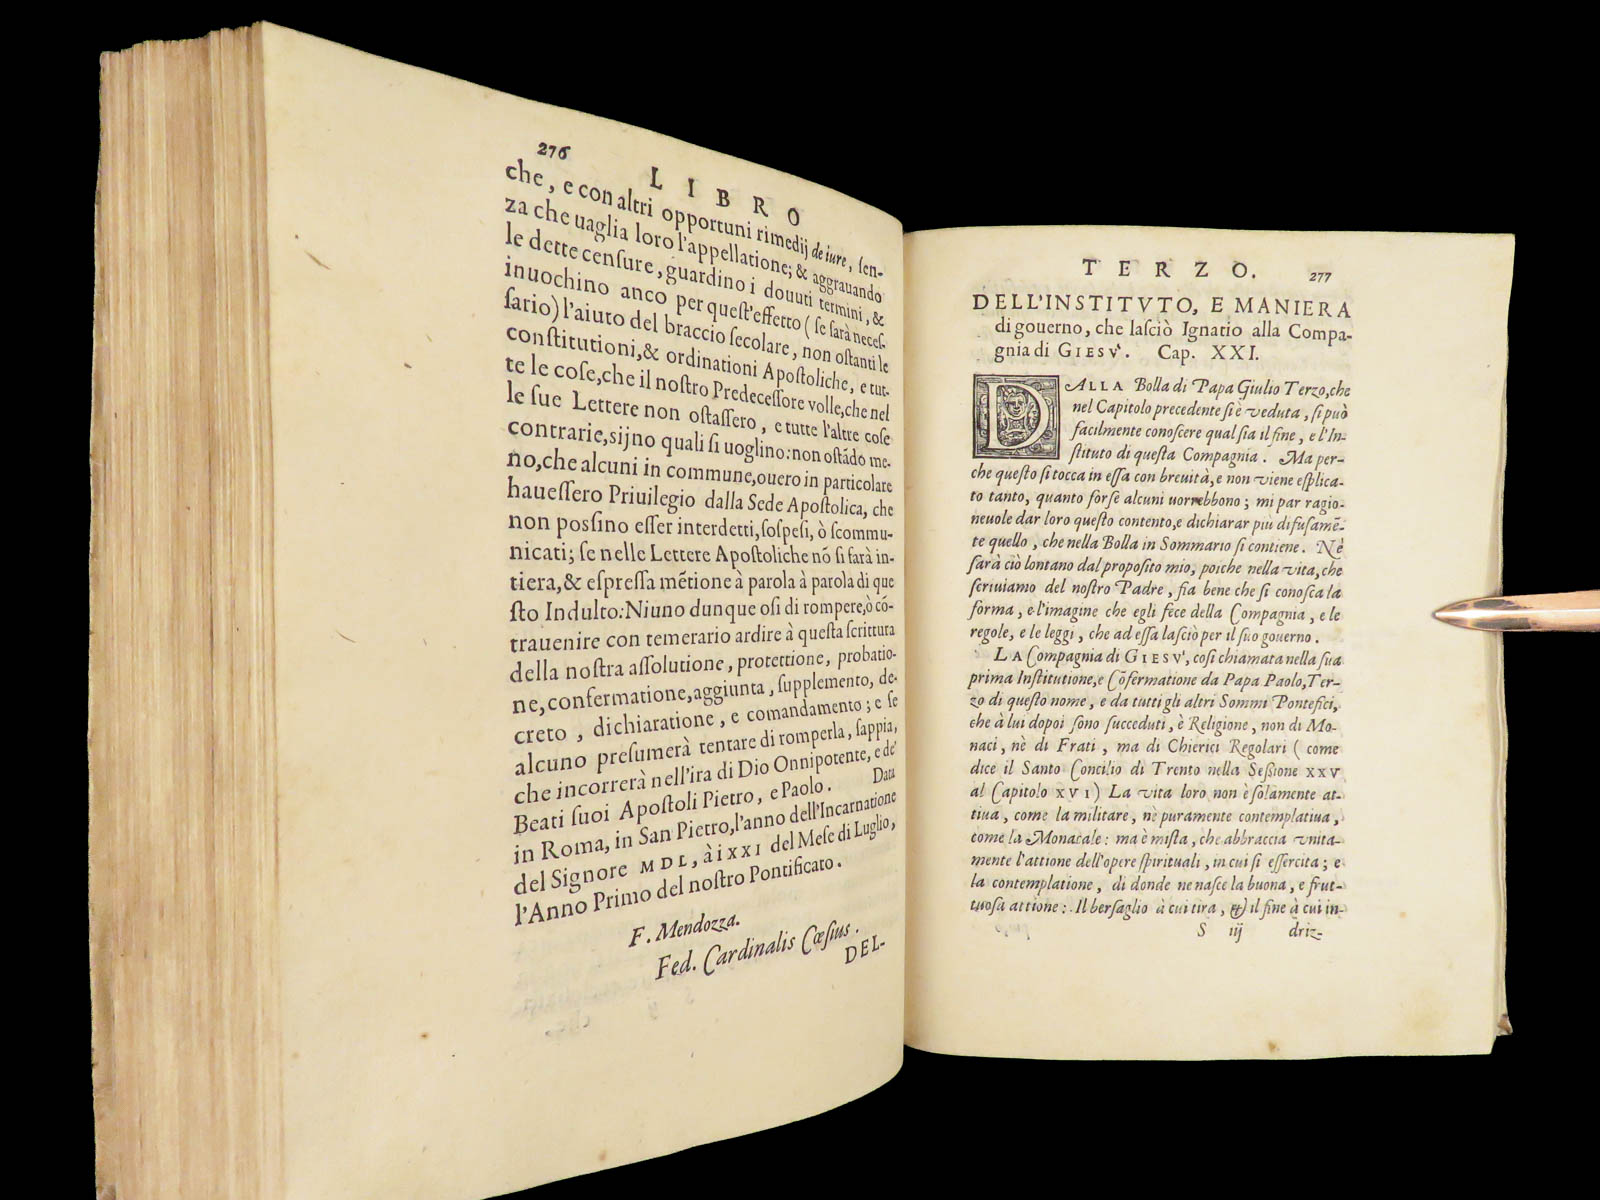 276
LIBRO
che, e con altri opportuni rimedij de iure, ſen-
za che uaglia loro l'appellatione; & aggrauando
le dette cenſure, guardino i douuti termini, &
inuochino anco per queſt'effetto (ſe ſarà neceſ-
ſario) l'aiuto del braccio ſecolare, non oſtanti le
conſtitutioni, & ordinationi Apoſtoliche, e tut-
te le coſe, che il noſtro Predeceſſore volle, che nel
le ſue Lettere non oſtaſſero, e tutte l'altre coſe
contrarie, sijno quali ſi uoglino: non oſtãdo me-
no, che alcuni in commune, ouero in particolare
haueſſero Priuilegio dalla Sede Apoſtolica, che
non poſſino eſſer interdetti, ſoſpeſi, ò ſcommu-
nicati; ſe nelle Lettere Apoſtoliche nõ ſi farà in-
tiera, & eſpreſſa mẽtione à parola à parola di que
ſto Indulto: Niuno dunque oſi di rompere, ò cõ-
trauenire con temerario ardire à queſta ſcrittura
della noſtra aſſolutione, protettione, probatio-
ne, confermatione, aggiunta, ſupplemento, de-
creto, dichiaratione, e comandamento; e ſe
alcuno preſumerà tentare di romperla, ſappia,
che incorrerà nell'ira di Dio Onnipotente, e de'
Beati ſuoi Apoſtoli Pietro, e Paolo. Data
in Roma, in San Pietro, l'anno dell'Incarnatione
del Signore MDL, à i XXI del Meſe di Luglio,
l'Anno Primo del noſtro Pontificato.
F. Mendozza.
Fed. Cardinalis Cœſius.
DEL-
TERZO.
277
DELL'INSTITVTO, E MANIERA
di gouerno, che laſciò Ignatio alla Compa-
gnia di GIESV'. Cap. XXI.
DALLA Bolla di Papa Giulio Terzo, che
nel Capitolo precedente ſi è veduta, ſi può
facilmente conoſcere qual ſia il fine, e l'In-
ſtituto di queſta Compagnia. Ma per-
che queſto ſi tocca in eſſa con breuità, e non viene eſplica-
to tanto, quanto forſe alcuni uorrebbono; mi par ragio-
neuole dar loro queſto contento, e dichiarar più difuſamẽ-
te quello, che nella Bolla in Sommario ſi contiene. Nè
ſarà ciò lontano dal propoſito mio, poiche nella vita, che
ſcriuiamo del noſtro Padre, ſia bene che ſi conoſca la
forma, e l'imagine che egli fece della Compagnia, e le
regole, e le leggi, che ad eſſa laſciò per il ſuo gouerno.
LA Compagnia di GIESV', coſi chiamata nella ſua
prima Inſtitutione, e Cõfermatione da Papa Paolo, Ter-
zo di queſto nome, e da tutti gli altri Sommi Pontefici,
che à lui dopoi ſono ſucceduti, è Religione, non di Mo-
naci, nè di Frati, ma di Chierici Regolari (come
dice il Santo Concilio di Trento nella Seſſione XXV
al Capitolo XVI) La vita loro non è ſolamente at-
tiua, come la militare, nè puramente contemplatiua,
come la Monacale: ma è miſta, che abbraccia vnita-
mente l'attione dell'opere ſpirituali, in cui ſi eſſercita; e
la contemplatione, di donde ne naſce la buona, e frut-
tuoſa attione: Il berſaglio à cui tira, & il fine à cui in-
S iij driz-